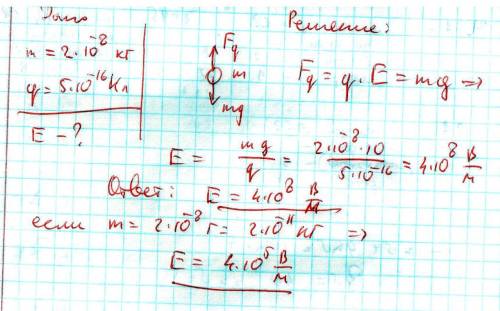 Дано
Решение:
m = 2·10⁻⁸ кг
q = 5·10⁻¹⁶ Кл
E - ?
Fq
m
mg
Fq = q·E = mg =>
E = mg/q = 2·10⁻⁸·10/5·10⁻¹⁶ = 4·10⁸ В/м
Ответ: E = 4·10⁸ В/м
если m = 2·10⁻⁸ г = 2·10⁻¹¹ кг =>
E = 4·10⁵ В/м